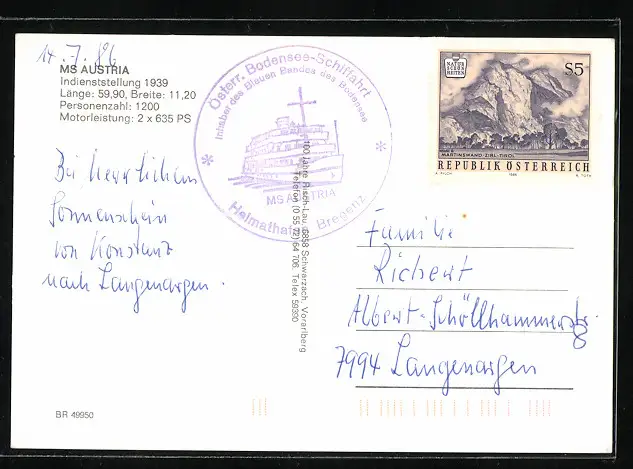 14.7.86
MS AUSTRIA
Indienststellung 1939
Länge: 59,90, Breite: 11,20
Personenzahl: 1200
Motorleistung: 2 x 635 PS
Bei herrlichem
Sonnenschein
von Konstanz
nach Langenargen.
BR 49950
Österr. Bodensee-Schiffahrt
Inhaber des Blauen Bandes des Bodensee
MS AUSTRIA
Heimathafen Bregenz
100 Jahre Risch-Lau, 6858 Schwarzach, Vorarlberg
Telefon (0 55 72) 64 706, Telex 59390
NATUR
SCHÖN
HEITEN
S5
MARTINSWAND-ZIRL-TIROL
REPUBLIK ÖSTERREICH
1986
Familie
Richert
Albert-Schöllhammerstr.
8
7994 Langenargen